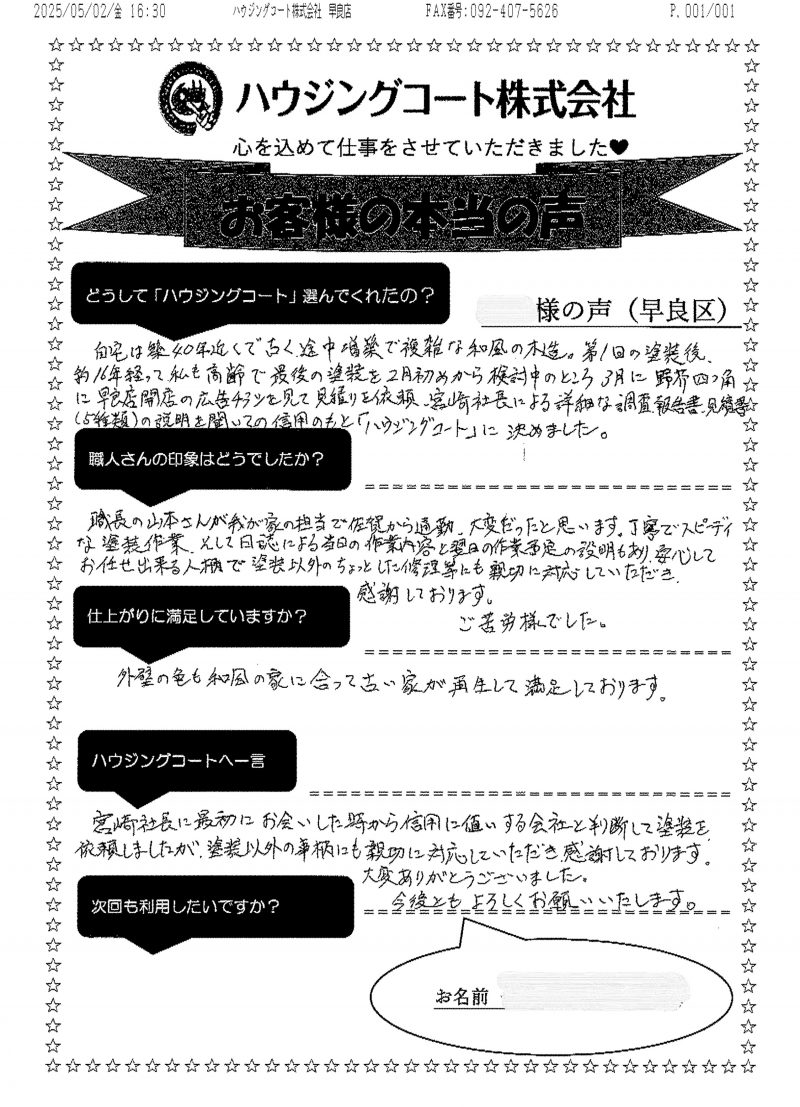 2025/05/02/金 16:30 ハウジングコート株式会社 早良店 FAX番号:092-407-5626 P.001/001
ハウジングコート株式会社
心を込めて仕事をさせていただきました♥
お客様の本当の声
どうして「ハウジングコート」選んでくれたの？
様の声（早良区）
自宅は築40年近くで古く途中増築で複雑な和風の木造。第1回の塗装後、
約16年経って私も高齢で最後の塗装を2月初めから検討中のところ 3月に 野芥四つ角
に早良店開店の広告チラシを見て見積りを依頼、宮崎社長による詳細な調査報告書、見積書
(5種類)の説明を聞いての信用のもと「ハウジングコート」に決めました。
職人さんの印象はどうでしたか？
職長の山本さんが我が家の担当で佐賀から通勤、大変だったと思います。丁寧でスピーディ
な塗装作業、そして日誌による当日の作業内容と翌日の作業予定の説明もあり、安心して
お任せ出来る人柄で塗装以外のちょっとした修理等にも親切に対応していただき、
感謝しております。
ご苦労様でした。
仕上がりに満足していますか？
外壁の色も和風の家に合って古い家が再生して満足しております。
ハウジングコートへ一言
宮崎社長に最初にお会いした時から信用に値いする会社と判断して塗装を
依頼しましたが、塗装以外の事柄にも親切に対応していただき感謝しております。
大変ありがとうございました。
次回も利用したいですか？
今後ともよろしくお願いいたします。
お名前